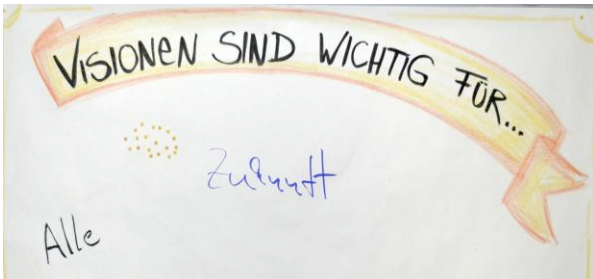 VISIONEN SIND WICHTIG FÜR...
Zukunft
Alle